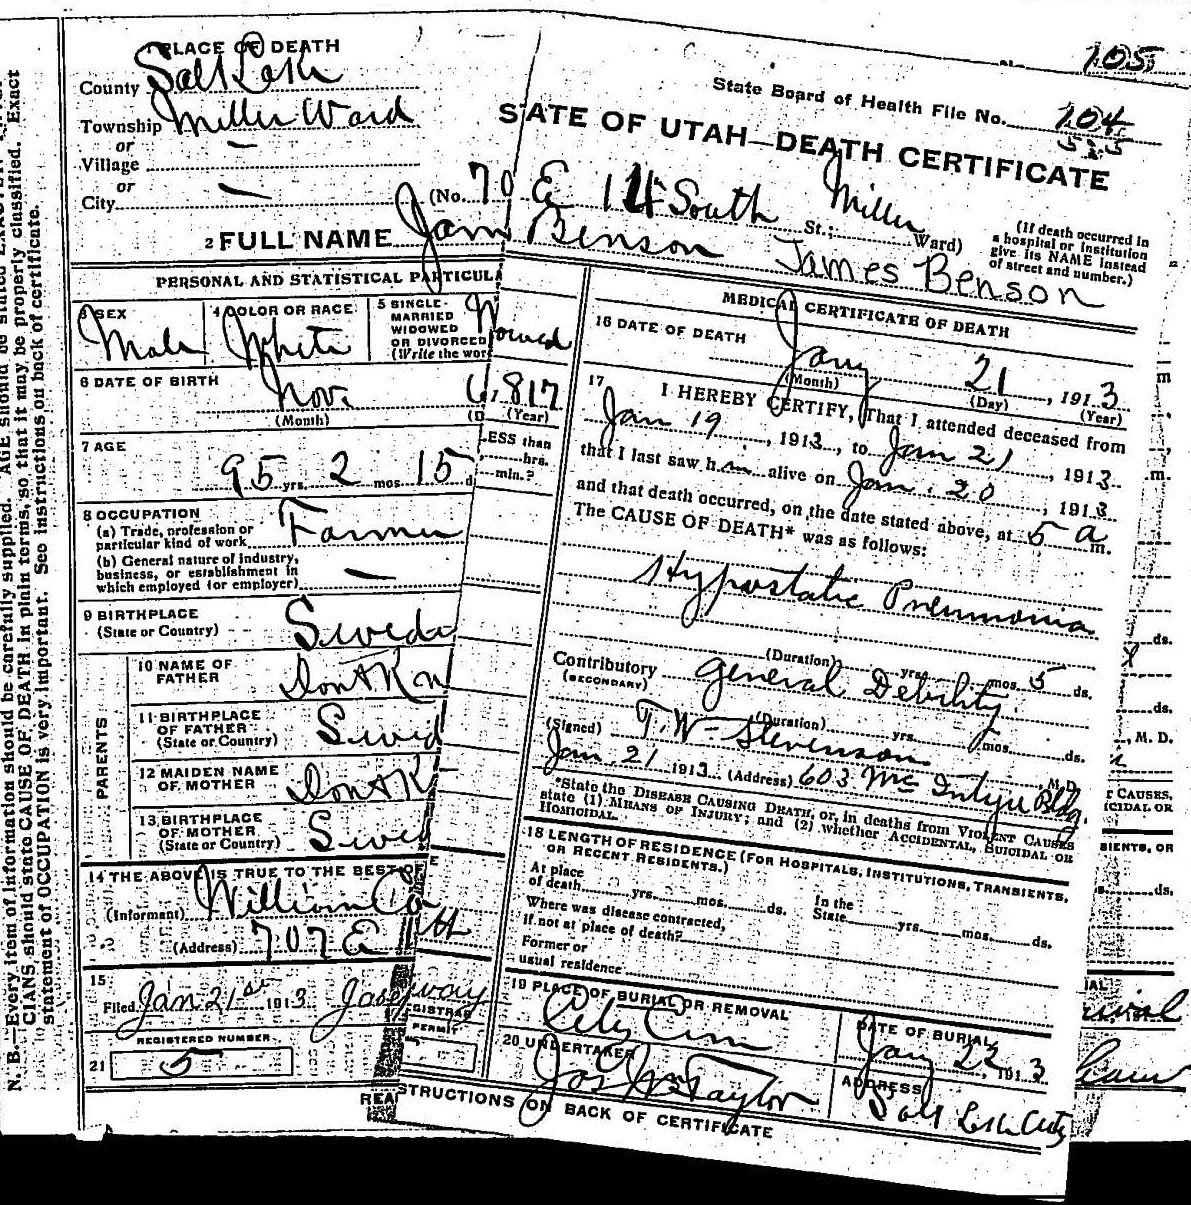 105
State Board of Health File No. 104
525
STATE OF UTAH—DEATH CERTIFICATE
PLACE OF DEATH
County Salt Lake
Township Miller Ward
or
Village —
or
City —
(No. 70 E 14 South St.; Miller Ward)
(If death occurred in
a hospital or institution
give its NAME instead
of street and number.)
2 FULL NAME Jam Benson James Benson
PERSONAL AND STATISTICAL PARTICULA
3 SEX Male
4 COLOR OR RACE White
5 SINGLE-
MARRIED
WIDOWED
OR DIVORCED
(Write the wor
6 DATE OF BIRTH
Nov. 6, 1817
(Month) (D (Year)
7 AGE
95 yrs. 2 mos 15 d
LESS than
hrs.
min.?
8 OCCUPATION
(a) Trade, profession or
particular kind of work Farmer
(b) General nature of industry,
business, or establishment in
which employed (or employer) —
9 BIRTHPLACE
(State or Country) Swede
PARENTS
10 NAME OF
FATHER Dont Kn
11 BIRTHPLACE
OF FATHER
(State or Country) Swed
12 MAIDEN NAME
OF MOTHER Dont K
13 BIRTHPLACE
OF MOTHER
(State or Country) Swed
14 THE ABOVE IS TRUE TO THE BEST
(Informant) William
(Address) 707 E
15
Filed Jan 21st 1913
REGISTERED NUMBER
21 5
ISTRAR
PERMIT
MEDICAL CERTIFICATE OF DEATH
16 DATE OF DEATH
Jany 21, 1913
(Month) (Day) (Year)
17 I HEREBY CERTIFY, That I attended deceased from
Jan 19, 1913, to Jan 21, 1913
that I last saw him alive on Jan. 20, 1913
and that death occurred, on the date stated above, at 5 a m.
The CAUSE OF DEATH* was as follows:
Hypostatic Pneumonia
(Duration) yrs. mos. 5 ds.
Contributory General Debility
(SECONDARY)
(Duration) yrs. mos. ds.
(Signed) T. W. Stevenson M.D.
Jan 21 1913 (Address) 603 McIntyre Bldg.
*State the DISEASE CAUSING DEATH, or, in deaths from VIOLENT CAUSES
state (1) MEANS OF INJURY; and (2) whether ACCIDENTAL, SUICIDAL OR
HOMICIDAL.
18 LENGTH OF RESIDENCE (FOR HOSPITALS, INSTITUTIONS, TRANSIENTS,
OR RECENT RESIDENTS.)
At place
of death yrs. mos. ds.
In the
State yrs. mos. ds.
Where was disease contracted,
if not at place of death?
Former or
usual residence
19 PLACE OF BURIAL OR REMOVAL
City Cem
DATE OF BURIAL
Jany 23, 1913
20 UNDERTAKER
Jos Wm Taylor
ADDRESS
Salt Lake City
REA STRUCTIONS ON BACK OF CERTIFICATE
m
m.
ds.
ds.
, M. D.
T CAUSES,
ICIDAL OR
SIENTS, OR
ds.
IAL
N. B.—Every item of information should be carefully supplied. AGE should be stated
CIANS should state CAUSE OF DEATH in plain terms, so that it may be properly classified. Exact
statement of OCCUPATION is very important. See instructions on back of certificate.